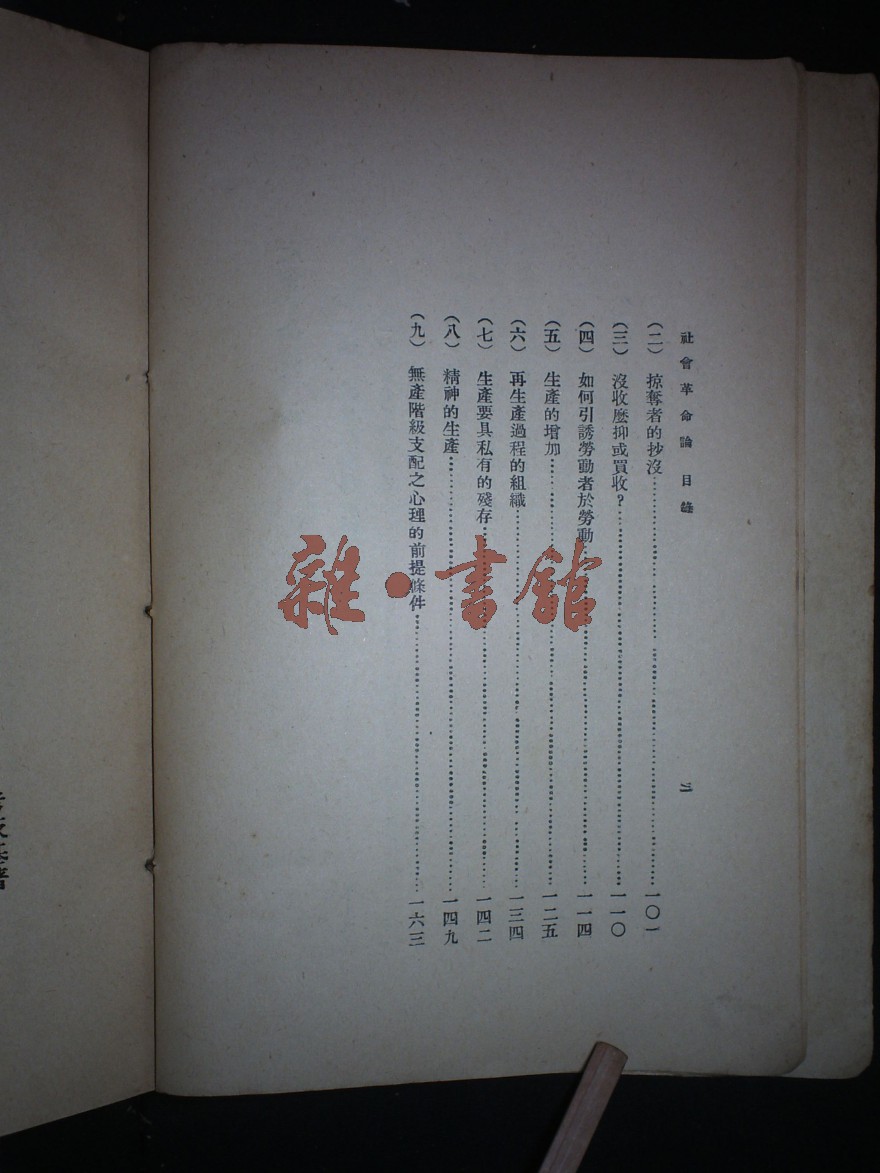 社會革命論 目錄
(二) 掠奪者的抄沒 一〇一
(三) 沒收麽抑或買收？ 一一〇
(四) 如何引誘勞動者於勞動 一一四
(五) 生產的增加 一二五
(六) 再生產過程的組織 一三四
(七) 生產要具私有的殘存 一四二
(八) 精神的生產 一四九
(九) 無產階級支配之心理的前提條件 一六三
雜·書館